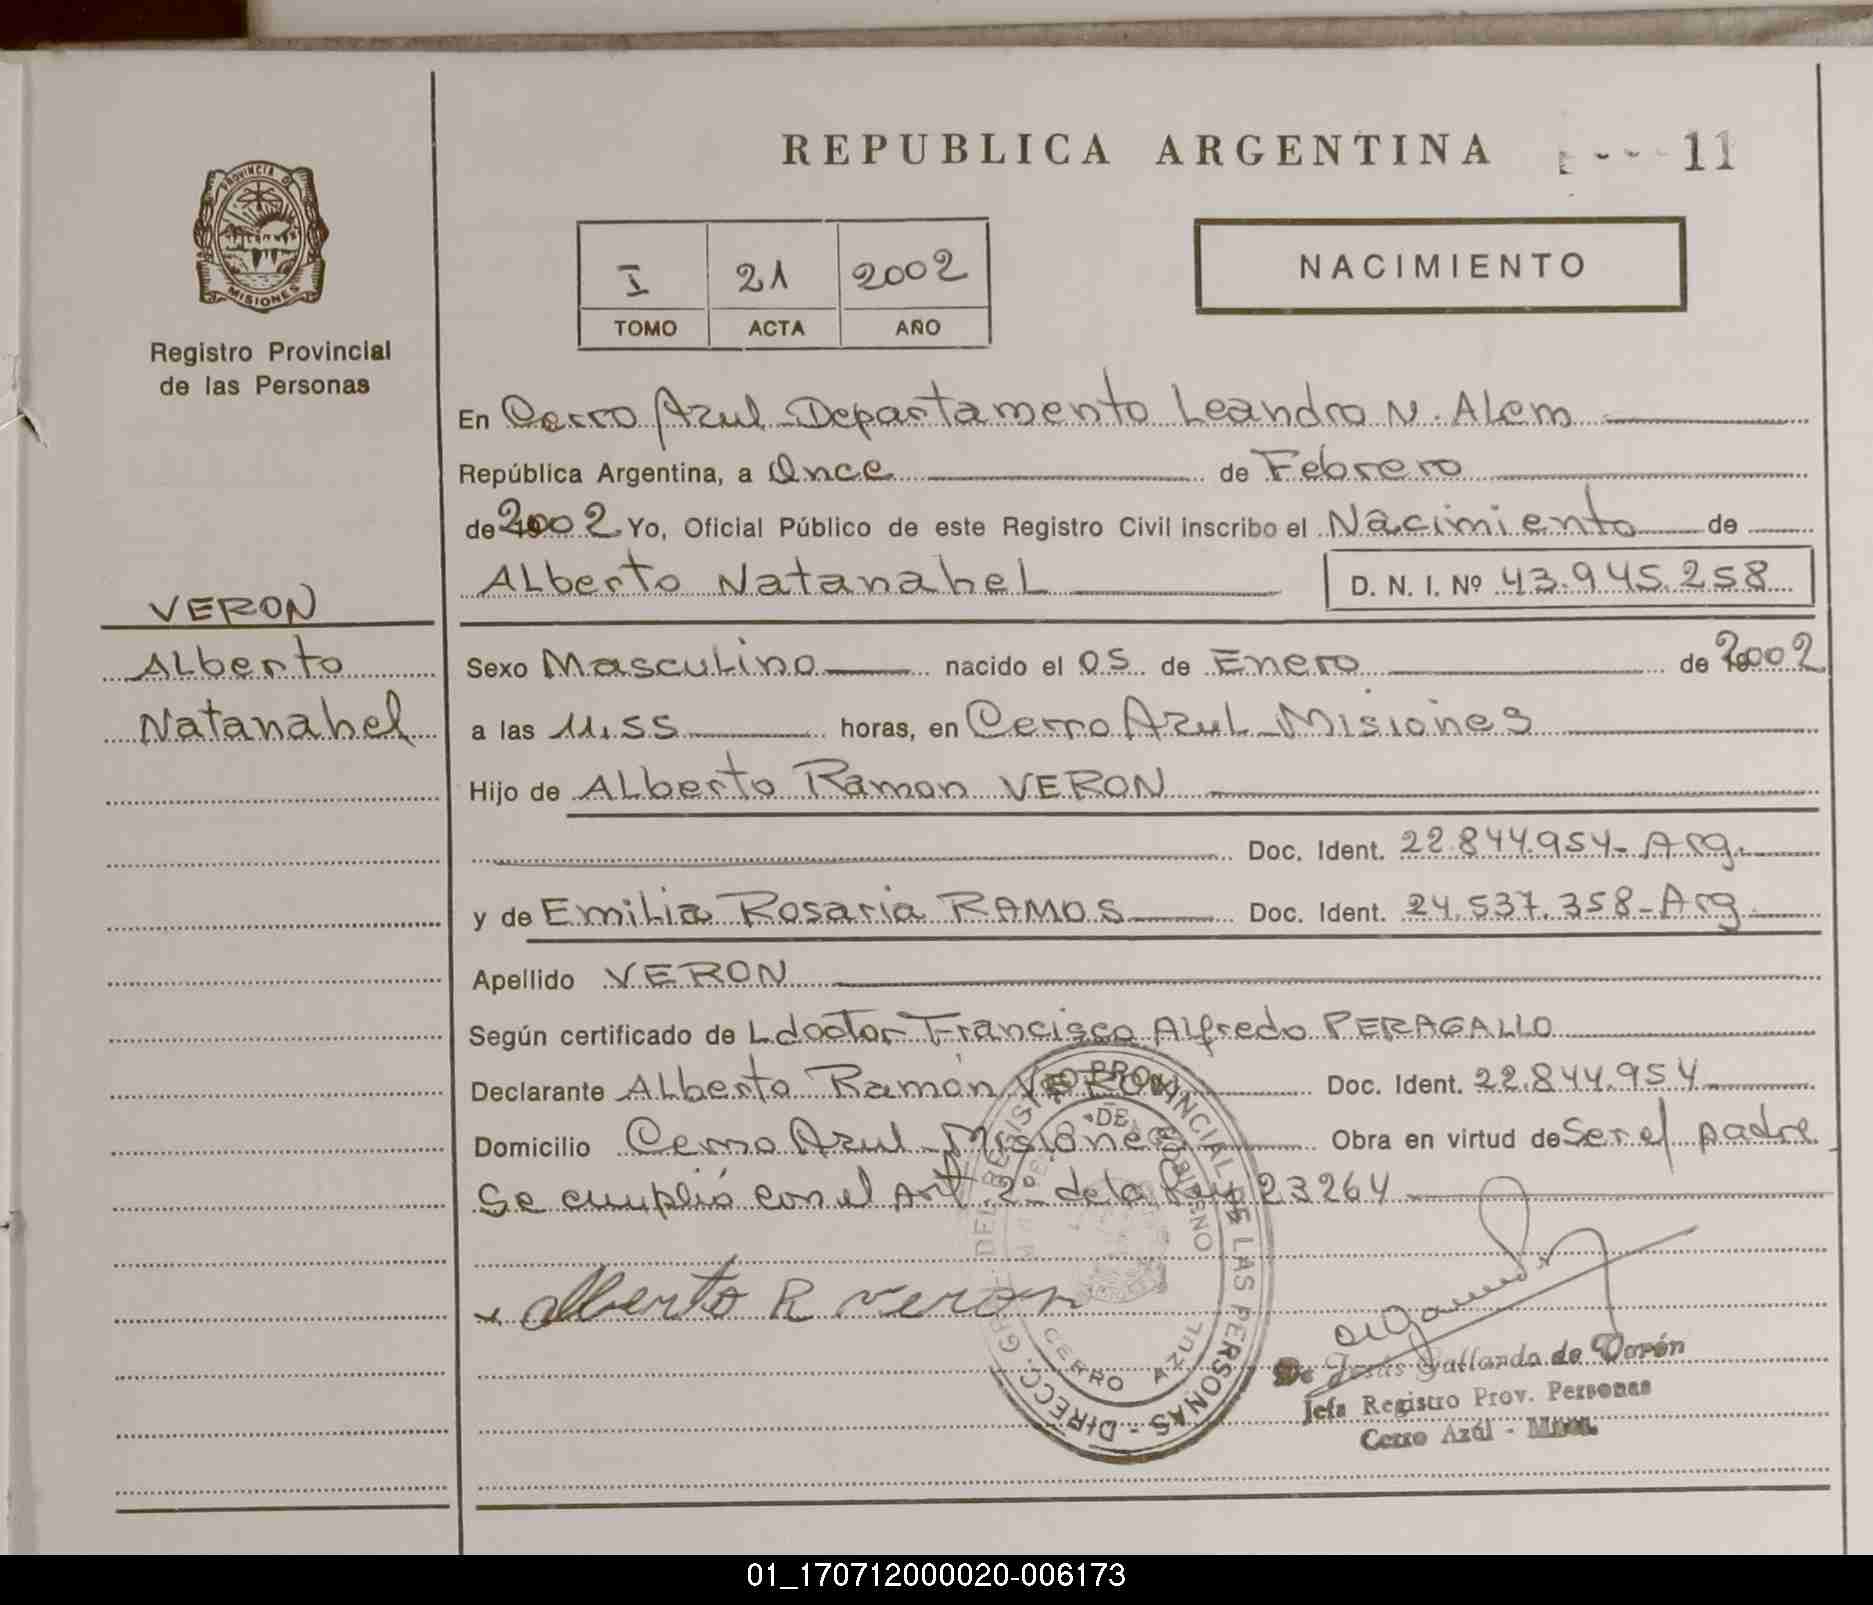 REPUBLICA ARGENTINA 11
PROVINCIA DE MISIONES
Registro Provincial
de las Personas
I 21 2002
TOMO ACTA AÑO
NACIMIENTO
En Cerro Azul - Departamento Leandro N. Alem
República Argentina, a Once de Febrero
de 2002 Yo, Oficial Público de este Registro Civil inscribo el Nacimiento de
Alberto Natanahel D. N. I. Nº 43.945.258
VERON
Alberto
Natanahel
Sexo Masculino nacido el 05 de Enero de 2002
a las 11,55 horas, en Cerro Azul - Misiones
Hijo de Alberto Ramon VERON
Doc. Ident. 22.844.954 - Arg.
y de Emilia Rosaria RAMOS Doc. Ident. 24.537.358 - Arg
Apellido VERON
Según certificado de L doctor Francisco Alfredo PERAGALLO
Declarante Alberto Ramón VERON Doc. Ident. 22.844.954
Domicilio Cerro Azul - Misiones Obra en virtud de Ser el padre
Se cumplió con el Art. 2º de la Ley 23264
Alberto R veron
DIRECC. GRAL. DEL REGISTRO PROVINCIAL DE LAS PERSONAS -
DE GOBIERNO
CERRO AZUL
De Jesús Gallardo de Verón
Jefa Registro Prov. Personas
Cerro Azúl - Mnes.
01_170712000020-006173